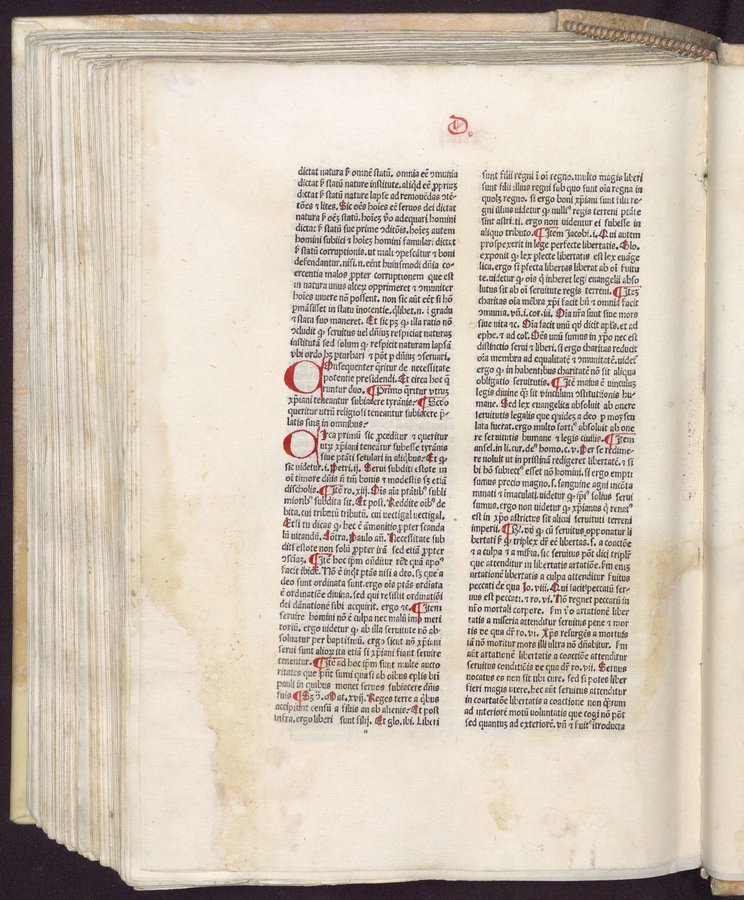 D.
dictat natura ꝑ omnē statū. omnia eē ꝯmunia
dictat ꝑ statū nature institute. aliqd eē ꝓpriuꝫ
dictat ꝑ statū nature lapse ad remouēdas ꝯtē-
tōes ⁊ lites. Sic oēs hoīes eē seruos dei dictat
natura ꝑ oēs statū. hoīeꝫ ꝟo adequari homini
dictat ꝑ statū sue prime ꝯditōis. hoīeꝫ autem
homini subiici ⁊ hoīeꝫ homini famulari dictat
ꝑ statū corruptionis. ut mali ꝯpescātur ⁊ boni
defendantur. nisi. n. eēnt huiusmodi dn̄ia co-
ercentia malos ꝓpter corruptionem que est
in natura unus alteꝝ opprimeret ⁊ ꝯmuniter
hoīes uiuere nō possent. non sic aūt eēt si hō
pmāsisset in statu īnocentie. qlibet. n. ī gradu
⁊ statu suo maneret. Et sic pꝫ ꝙ illa ratio nō
ꝯcludit ꝙ seruitus uel dn̄iuꝫ respiciat naturaꝫ
institutā sed solum ꝙ respicit naturam lapsā
vbi ordo hꝫ pturbari ⁊ pōt ꝑ dn̄iuꝫ ꝯseruari.
COnsequenter qritur de necessitate
potentie presidendi. Et circa hoc q̄
runtur duo. ¶Primo qritur utruꝫ
xp̄iani teneantur subiacere tyrānis. ¶Scdo
queritur utrū religiosi teneantur subiacere p̄-
latis suis in omnibus.
CIrca primū sic ꝓceditur ⁊ queritur
utꝝ xp̄iani teneātur subesse tyrānis
siue ptāti seculari in aliqbus. Et ꝙ
sic uidetur. i. Petri. ij. Serui subditi estote in
oī timore dn̄is nō tm̄ bonis ⁊ modestis sꝫ etiā
discholis. ¶Itē ro. xiij. Oīs aīa ptātibꝰ subli
mioribꝰ subdita sit. Et post. Reddite oībꝰ de
bita. cui tributū tributū. cui uectigal uectigal.
Et si tu dicas ꝙ hec ē āmonitio ꝓpter scanda
lū uitandū. Cōtra. Paulo añ. Necessitate sub
diti estote non solū ꝓpter irā sed etiā ꝓpter
ꝯsciaꝫ. ¶Itē hoc ip̄m ondītur rōe quā apoꝰ
facit ibidē. Nō ē inqt ptās nisi a deo. sꝫ que a
deo sunt ordinata sunt. ergo oīs ptās ordiata
ē ordinatiōe diuina. sed qui resistit ordinatiōi
dei dānatione sibi acquirit. ergo ⁊c. ¶Item
seruire homini nō ē culpa nec malū imo meri
toriū. ergo uidetur ꝙ ab illa seruitute nō ab-
soluatur per baptismū. ergo sicut nō xp̄iani
serui sunt alioꝝ ita etiā si xp̄iani fiant seruire
tenentur. ¶Itē ad hoc ip̄m sunt multe aucto
ritates que pn̄t sumi quasi ab oībus ep̄lis bti
pauli in quibus monet seruos subiacere dn̄is
suis ¶Sꝫ ꝯ. Mat. xvij. Reges terre a qbus
accipiūt censū a filiis an ab alienis. Et post
infra. ergo liberi sunt filij. Et glo. ibi. Liberi
sunt filii regni ī oī regno. multo magis liberi
sunt filii illius regni sub quo sunt oīa regna in
quolꝫ regno. si ergo boni xp̄iani sunt filii re-
gni illius uidetur ꝙ nullꝰ regis terreni ptāte
sint astricti. ergo non uidentur ei subesse in
aliquo tributo. ¶Item Jacobi. i. Qui autem
prospexerit in lege perfecte libertatis. Glo.
exponit ꝙ lex pfecte libertatis est lex euāge
lica. ergo si pfecta libertas liberat ab oī suitu
te. uidetur ꝙ oīs q̄ inheret legi euangelii abso
lutus sit ab oī seruitute regis terreni. ¶Iteꝫ
charitas oīa mēbra xp̄i facit bn̄ ⁊ omnia facit
ꝯmunia. vñ. i. cor. iii. Oīa ur̄a sunt siue mors
siue uita ⁊c. Oīa facit unū qđ dicit ap̄ls. et ad
ephe. ⁊ ad col. Oēs unū sumus in xp̄o nec est
distinctio serui ⁊ liberi. si ergo charitas reducit
oīa membra ad equalitatē ⁊ ꝯmunitatē. uidet᷑
ergo ꝙ in habentibus charitatē nō sit aliqua
obligatio seruitutis. ¶Itē maius ē vinculuꝫ
legis diuine q̄ sit vinculum ꝯstitutionis hu-
mane. Sed lex euangelica absoluit ab onere
seruitutis legalis que quideꝫ a deo p moysen
lata fuerat. ergo multo fortiꝰ absoluit ab one
re seruitutis humane ⁊ legis ciuilis. ¶Item
ansel. in li. cur. deꝰ homo. c. v. Per se redime-
re uoluit ut in pristinā redigeret libertatē. ⁊ si
bi hō subiectꝰ esset nō homini. si ergo empti
sumus precio magno. s. sanguine agni incōta
minati ⁊ imaculati. uidetur ꝙ ip̄iꝰ solius serui
sumus. ergo non uidetur ꝙ xp̄ianus q̄ renatꝰ
est in xp̄o astrictus sit alicui seruituti terreni
imperii. ¶R. vō ꝙ cū seruitus opponatur li
bertati ꝑ ꝙ triplex dr̄ eē libertas. s. a coactōe
⁊ a culpa ⁊ a miseria. sic seruitus pōt dici triplr̄
que attenditur in libertatis artatiōe. Fm eniꝫ
artationē libertatis a culpa attenditur suitus
peccati de qua Jo. viii. Qui facit peccatū ser-
uus est peccati. ⁊ ro. vi. Nō regnet peccatū in
nr̄o mortali corpore. Fm ꝟo artationē liber
tatis a miseria attenditur seruitus pene ⁊ mor
tis de qua dr̄ ro. vi. Xp̄s resurgēs a mortuis
iā nō moritur mors illi ultra nō dn̄abitur. Fm
aūt artationē libertatis a coactiōe attenditur
seruitus conditiōis de qua dr̄ ro. vii. Seruus
uocatus es non sit tibi cure. sed si potes liber
fieri magis utere. hec aūt seruitus attenditur
in coartatōe libertatis a coactione non qꝫtum
ad interiorē motū voluntatis que cogi nō pōt
sed quantuꝫ ad exteriorē. vñ ⁊ suitꝰ itroducta